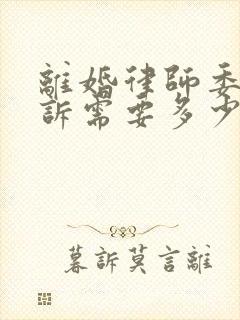 離婚律師委
訴需要多少
暮訴莫言離